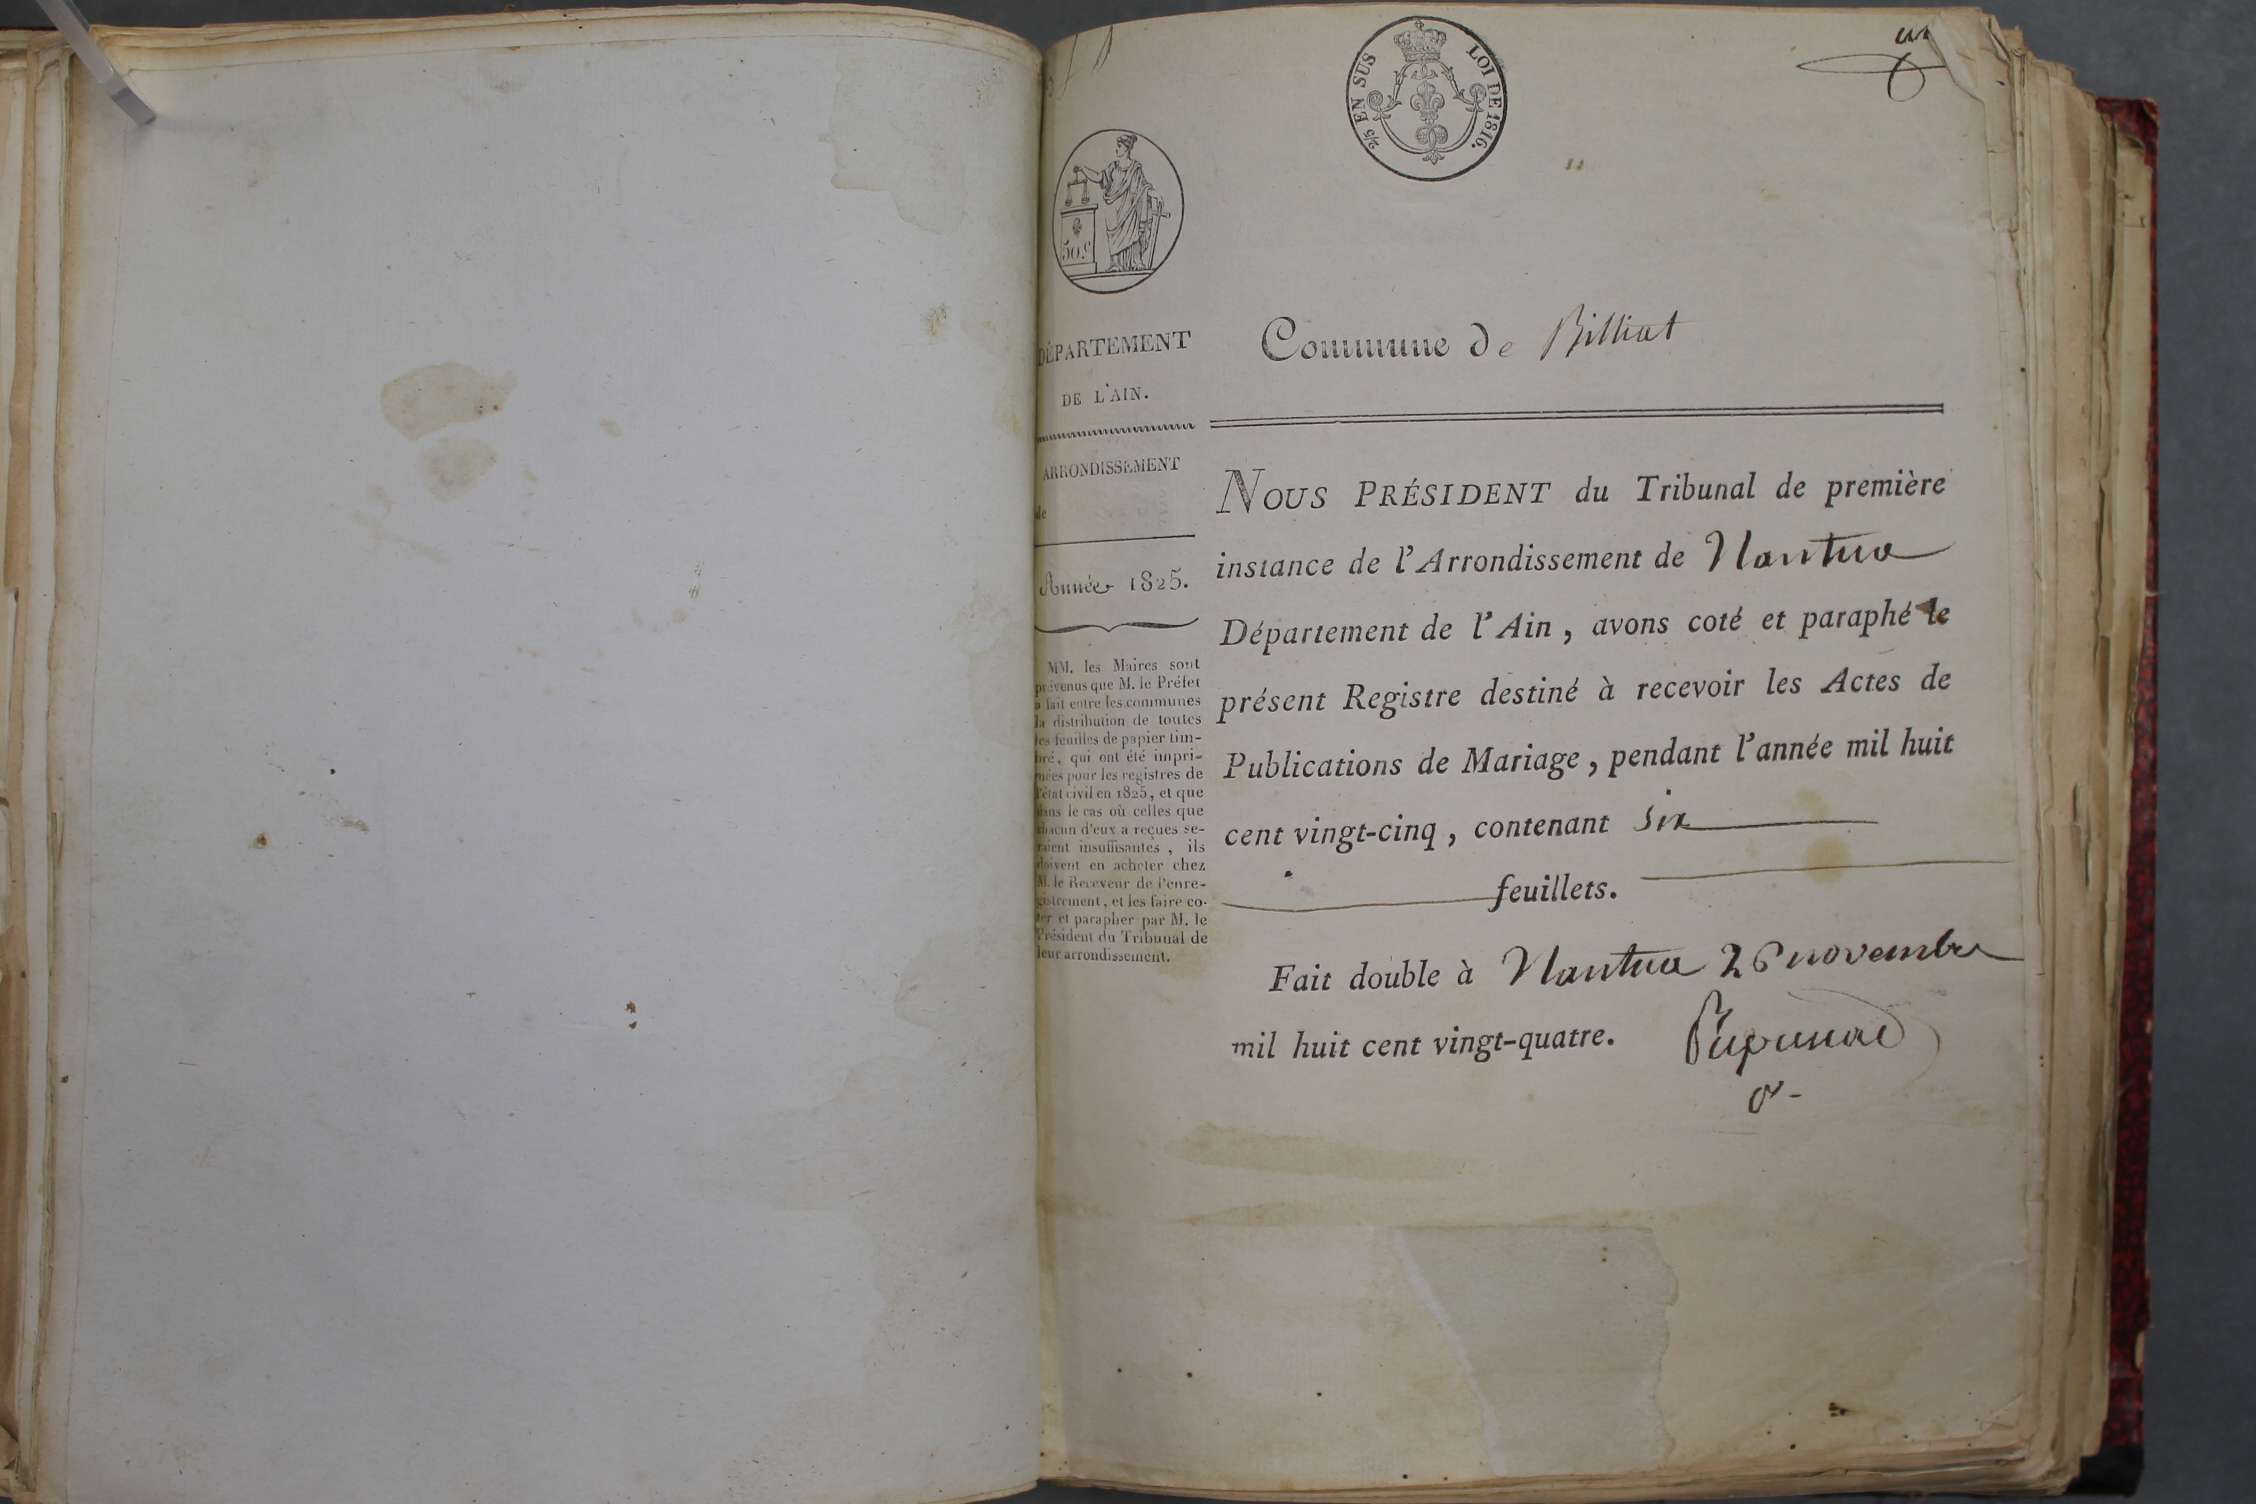 2/5 EN SUS LOI DE 1816.
50.c
DÉPARTEMENT
DE L'AIN.
ARRONDISSEMENT
de
Année 1825.
MM. les Maires sont
prévenus que M. le Préfet
a fait entre les communes
la distribution de toutes
les feuilles de papier tim-
bré, qui ont été impri-
mées pour les registres de
l'état civil en 1825, et que
dans le cas où celles que
chacun d'eux a reçues se-
raient insuffisantes, ils
doivent en acheter chez
M. le Receveur de l'enre-
gistrement, et les faire co-
ter et parapher par M. le
Président du Tribunal de
leur arrondissement.
Commune de Billiat
NOUS PRÉSIDENT du Tribunal de première
instance de l'Arrondissement de Nantua
Département de l'Ain, avons coté et paraphé le
présent Registre destiné à recevoir les Actes de
Publications de Mariage, pendant l'année mil huit
cent vingt-cinq, contenant six
feuillets.
Fait double à Nantua 26 novembre
mil huit cent vingt-quatre.